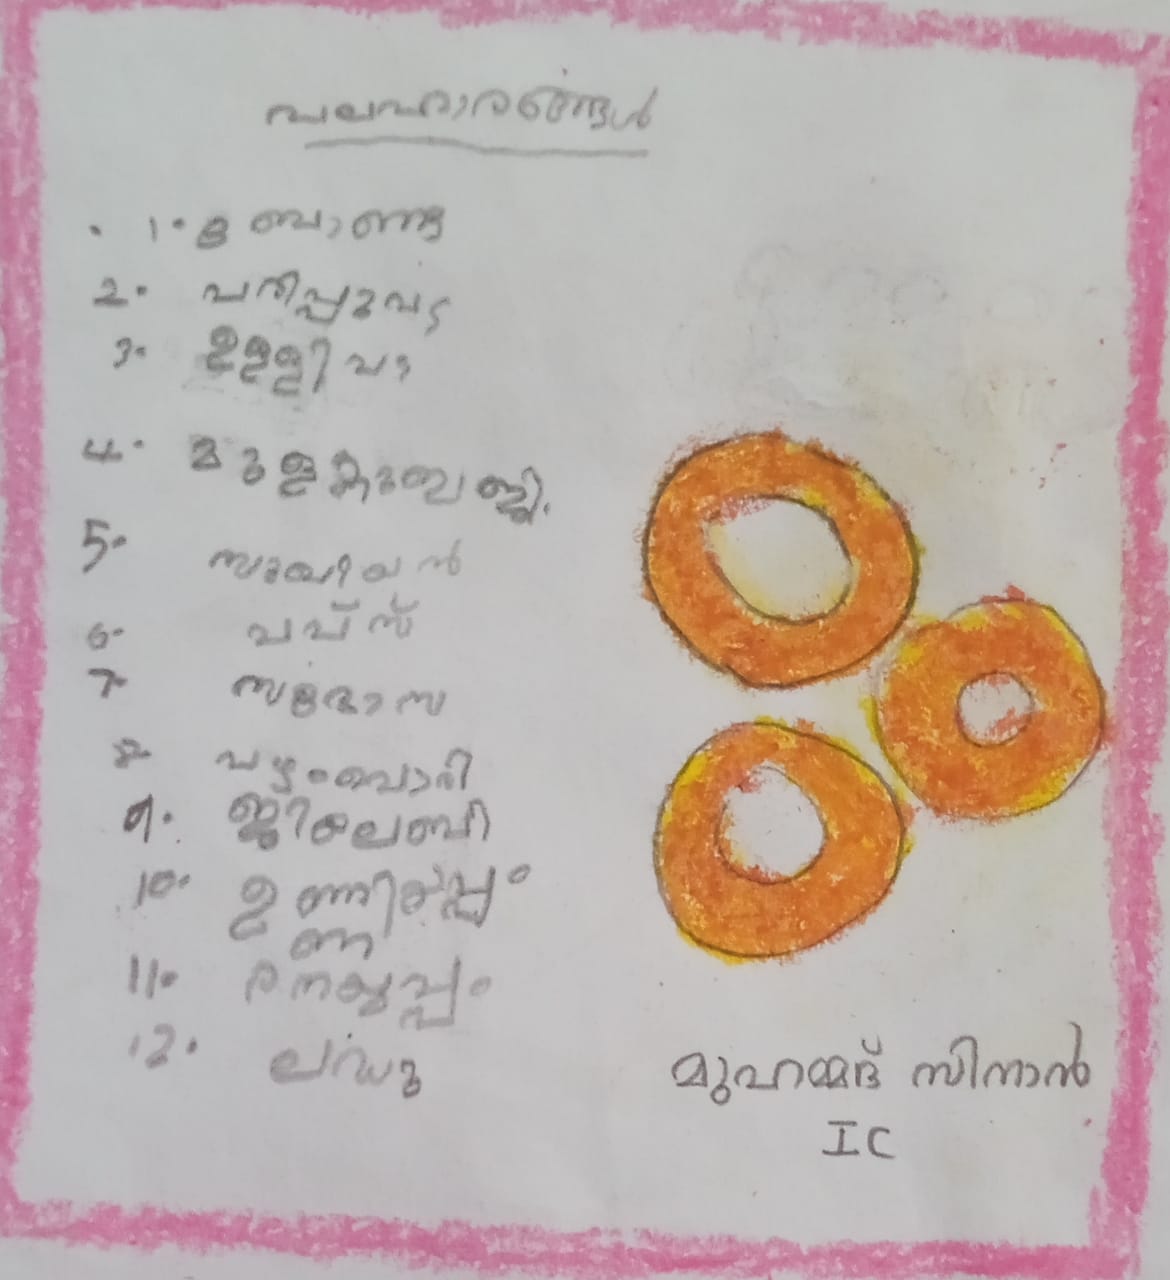 പലഹാരങ്ങൾ
1. ബോണ്ട
2. പരിപ്പുവട
3. ഉള്ളിവട
4. മുളകുബജ്ജി.
5. സുഖിയൻ
6. പപ്സ്
7. സമോസ
8. പഴംപൊരി
9. ജിലേബി
10. ഉണ്ണിയപ്പം
11. നെയ്യപ്പം
12. ലഡു
മുഹമ്മദ് സിനാൻ
IC